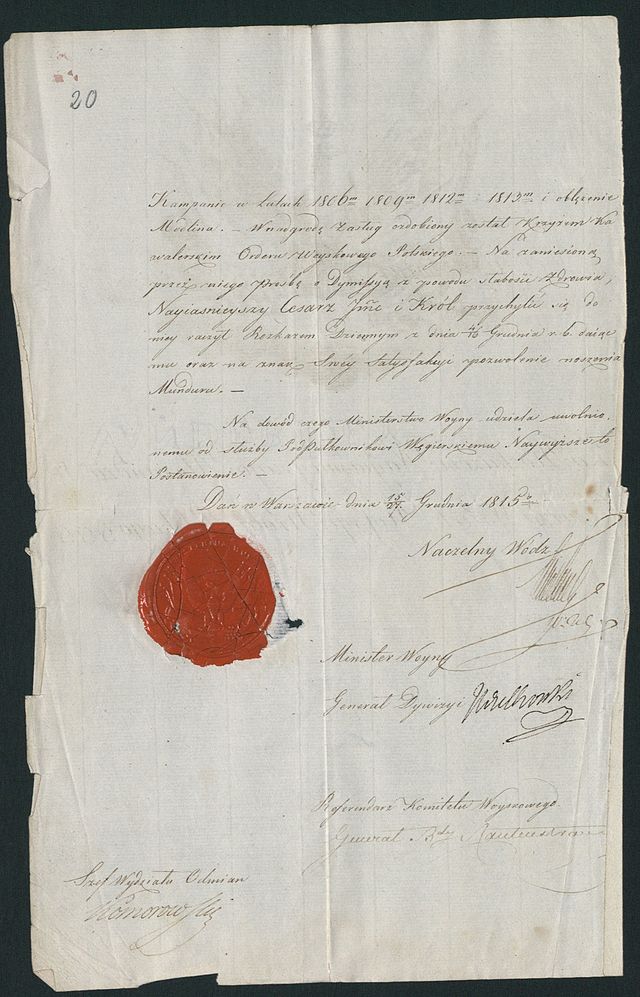 20
Kampanie w Latach 1806m 1809m 1812m 1813m i oblężenie
Modlina. – W nadgrodę Zasług ozdobiony został Krzyżem Ka
walerskim Orderu Woyskowego Polskiego. – Na zaniesioną
przez niego Prośbę o Dymissyą z powodu słabości Zdrowia,
Nayiasnieyszy Cesarz Jmć i Król przychylić się do
niey raczył Rozkazem Dziennym z dnia 4/16 Grudnia r. b. daiąc
mu oraz na znak Swéy satysfakcyi pozwolenie noszenia
Munduru. –
Na dowód czego Ministerstwo Woyny udziela uwolnio
nemu od służby PodPułkownikowi Węgierskiemu Naywyższe to
Postanowienie. –
Dań w Warszawie dnia 15/27 Grudnia 1815o
Naczelny Wódz
Minister Woyny
Generał Dywizyi Wielhorski
Referendarz Komitetu Woyskowego
Generał Bdy
Szef Wydziału Odmian
Komorowski